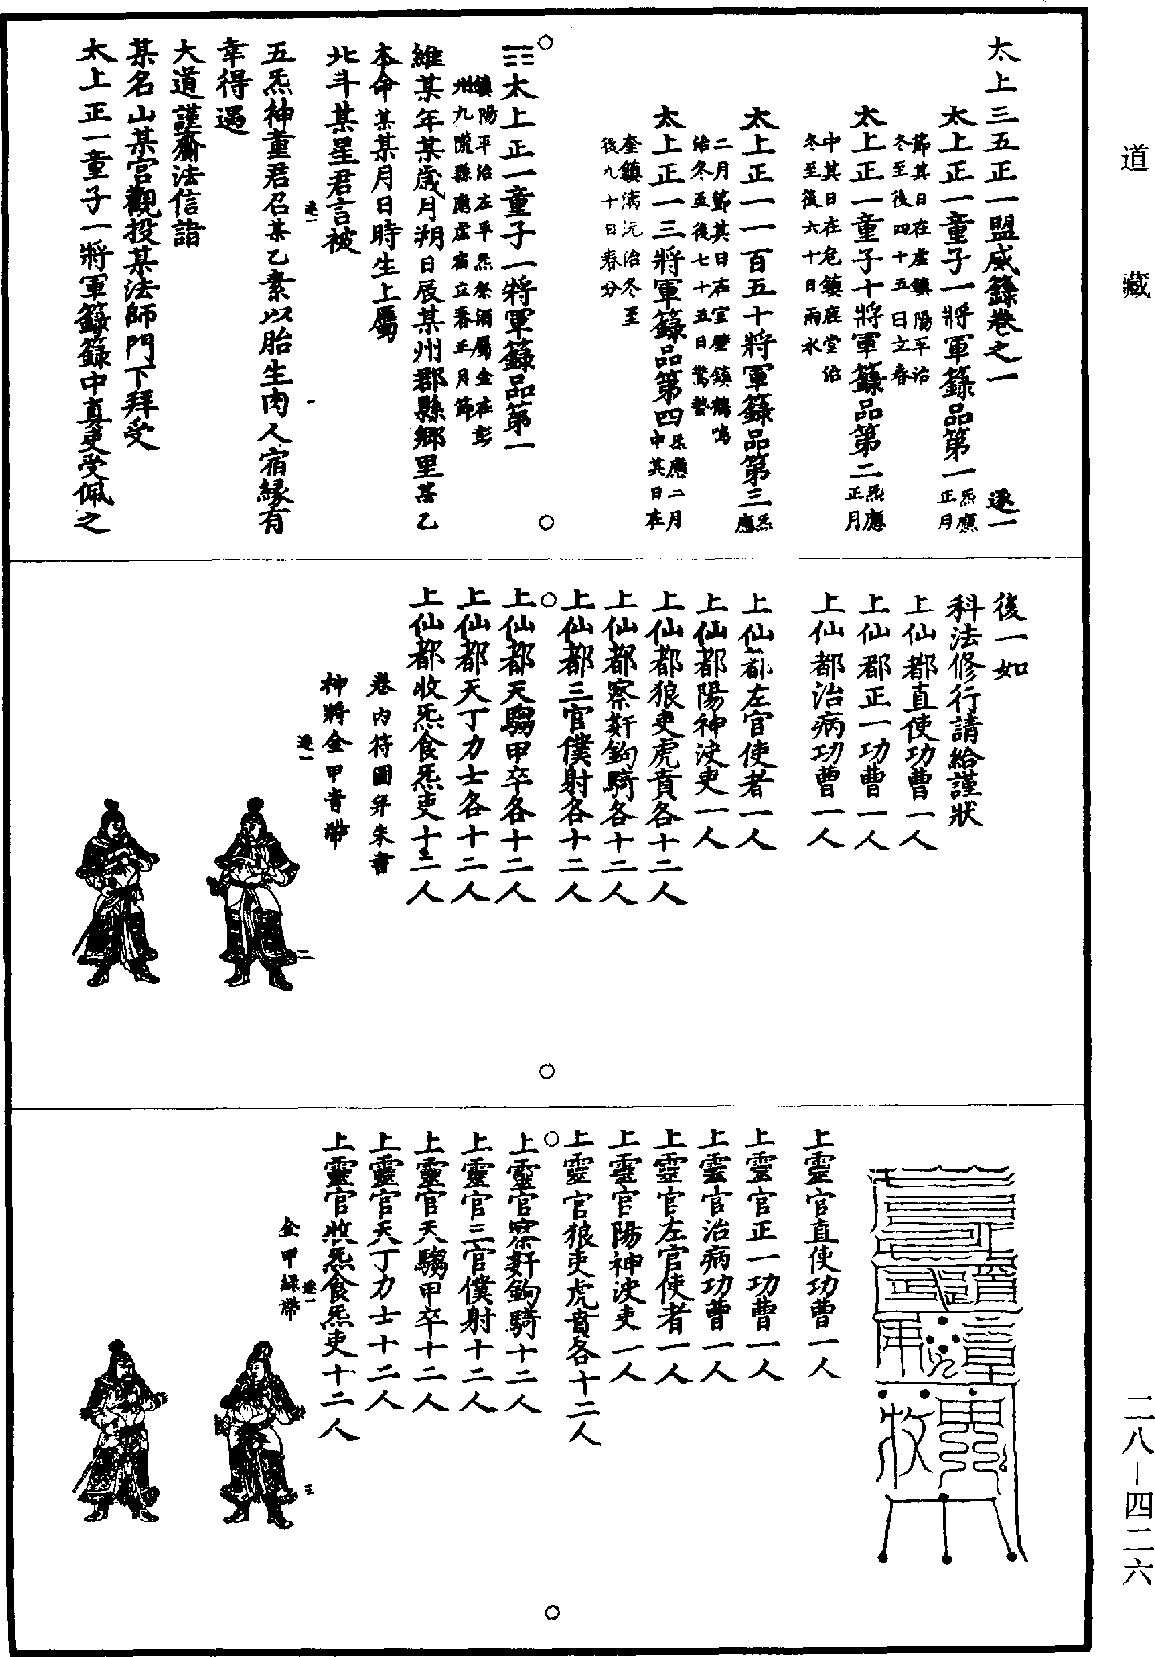 道藏
太上三五正一盟威籙卷之一
逐一
太上正一童子一將軍籙品第一炁應正月
節其日在虛鎮陽平治
冬至後四十五日立春
太上正一童子十將軍籙品第二炁應正月
中其日在危鎮鹿堂治
冬至後六十日雨水
太上正一一百五十將軍籙品第三炁應
二月節其日在室壁鎮鶴鳴
治冬至後七十五日驚蟄
太上正一三將軍籙品第四炁應二月中其日在
奎鎮漓沅治冬至
後九十日春分
☷太上正一童子一將軍籙品第一
鎮陽平治左平炁祭酒屬金在彭
州九隴縣應虛宿立春正月節
維某年某歲月朔日辰某州郡縣鄉里某乙
本命某某月日時生上屬
北斗某星君言被
逐一
五炁神童君召某乙素以胎生肉人宿緣有
幸得遇
大道謹齎法信詣
某名山某宮觀投某法師門下拜受
太上正一童子一將軍籙籙中真吏受佩之
後一如
科法修行請給謹狀
上仙都直使功曹一人
上仙都正一功曹一人
上仙都治病功曹一人
上仙都左官使者一人
上仙都陽神決吏一人
上仙都狼吏虎賁各十二人
上仙都察奸鉤騎各十二人
上仙都三官僕射各十二人
上仙都天騶甲卒各十二人
上仙都天丁力士各十二人
上仙都收炁食炁吏十二人
卷內符圖并朱書
神將金甲青帶
逐一
二
上靈官直使功曹一人
上靈官正一功曹一人
上靈官治病功曹一人
上靈官左官使者一人
上靈官陽神決吏一人
上靈官狼吏虎賁各十二人
上靈官察奸鉤騎十二人
上靈官三官僕射十二人
上靈官天騶甲卒十二人
上靈官天丁力士十二人
上靈官收炁食炁吏十二人
金甲綠帶
逐一
三
二八-四二六